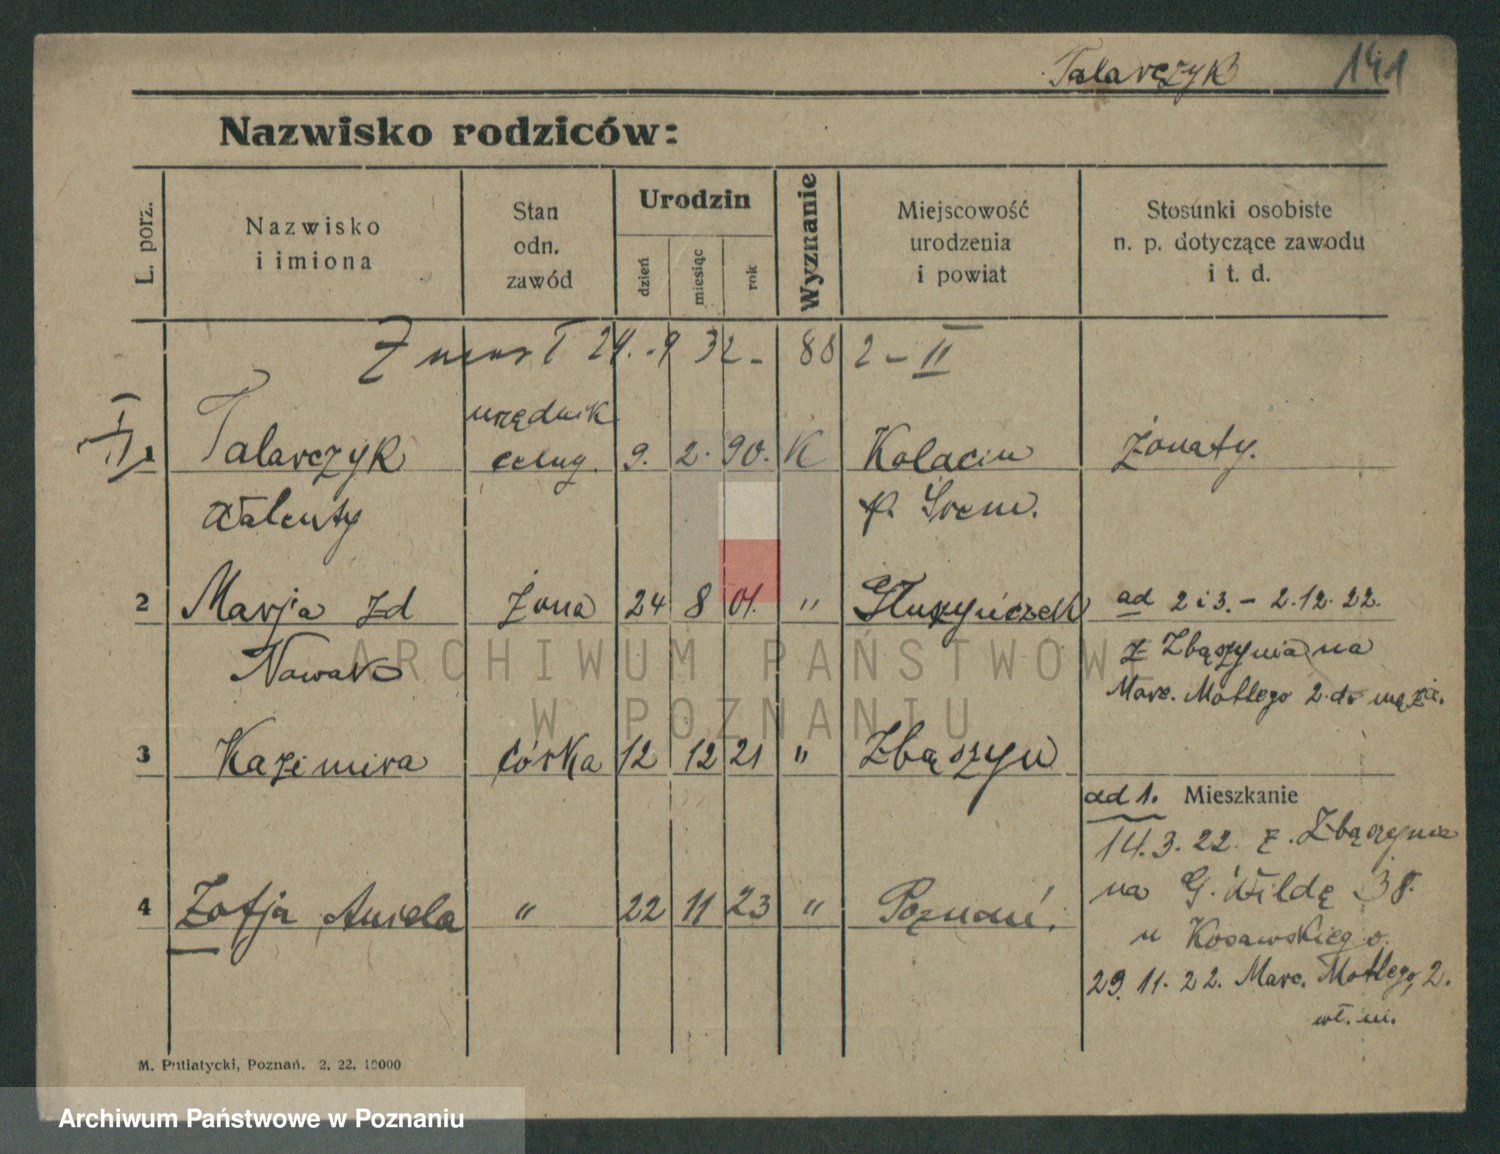 Talarczyk 141
Nazwisko rodziców:
L. porz.
Nazwisko
i imiona
Stan
odn.
zawód
Urodzin
dzień
miesiąc
rok
Wyznanie
Miejscowość
urodzenia
i powiat
Stosunki osobiste
n. p. dotyczące zawodu
i t. d.
24. 9 32 - 88 2 - II
urzędnik
1 Talarczyk celny. 9. 2. 90. K Kolacin żonaty.
Walenty p. Śrem.
2 Marja zd żona 24 8 01. " ad 2 i 3. - 2.12.22.
Nowak z Zbąszynia na
Marc. Mottego 2. do męża.
3 Kazimira córka 12 12 21 " Zbąszyn
ad 1. Mieszkanie
14.3.22 z. Zbąszynia
na G. Wildę 38.
4 Zofja Aniela " 22 11 23 " Poznań.
u Kosawskiego.
29. 11. 22. Marc. Mottego, 2.
wł. m.
M. Putiatycki, Poznań. 2. 22. 10000
ARCHIWUM PAŃSTWOWE
W POZNANIU
Archiwum Państwowe w Poznaniu